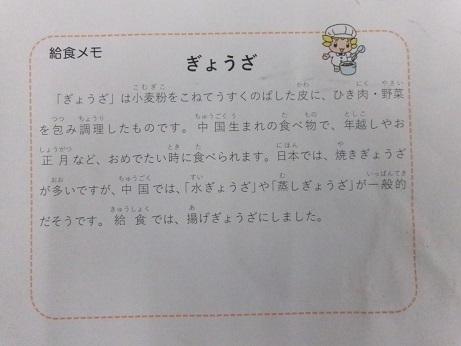 給食メモ
ぎょうざ
「ぎょうざ」は小麦粉をこねてうすくのばした皮に、ひき肉・野菜
を包み調理したものです。中国生まれの食べ物で、年越しやお
正月など、おめでたい時に食べられます。日本では、焼きぎょうざ
が多いですが、中国では、「水ぎょうざ」や「蒸しぎょうざ」が一般的
だそうです。給食では、揚げぎょうざにしました。